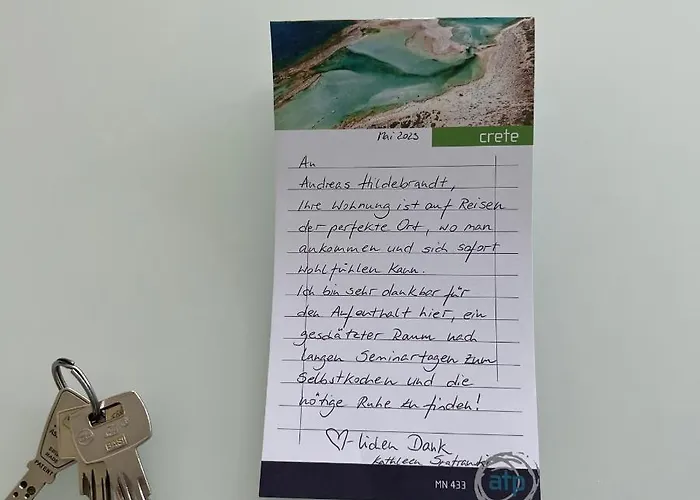 Mai 2023
crete
An
Andreas Hildebrandt,
Ihre Wohnung ist auf Reisen
der perfekte Ort, wo man
ankommen und sich sofort
wohlfühlen kann.
Ich bin sehr dankbar für
den Aufenthalt hier, ein
geschätzter Raum nach
langen Seminartagen zum
Selbstkochen und die
nötige Ruhe zu finden!
♡-lichen Dank
Kathleen
MN 433
atp
BASI
PATENT